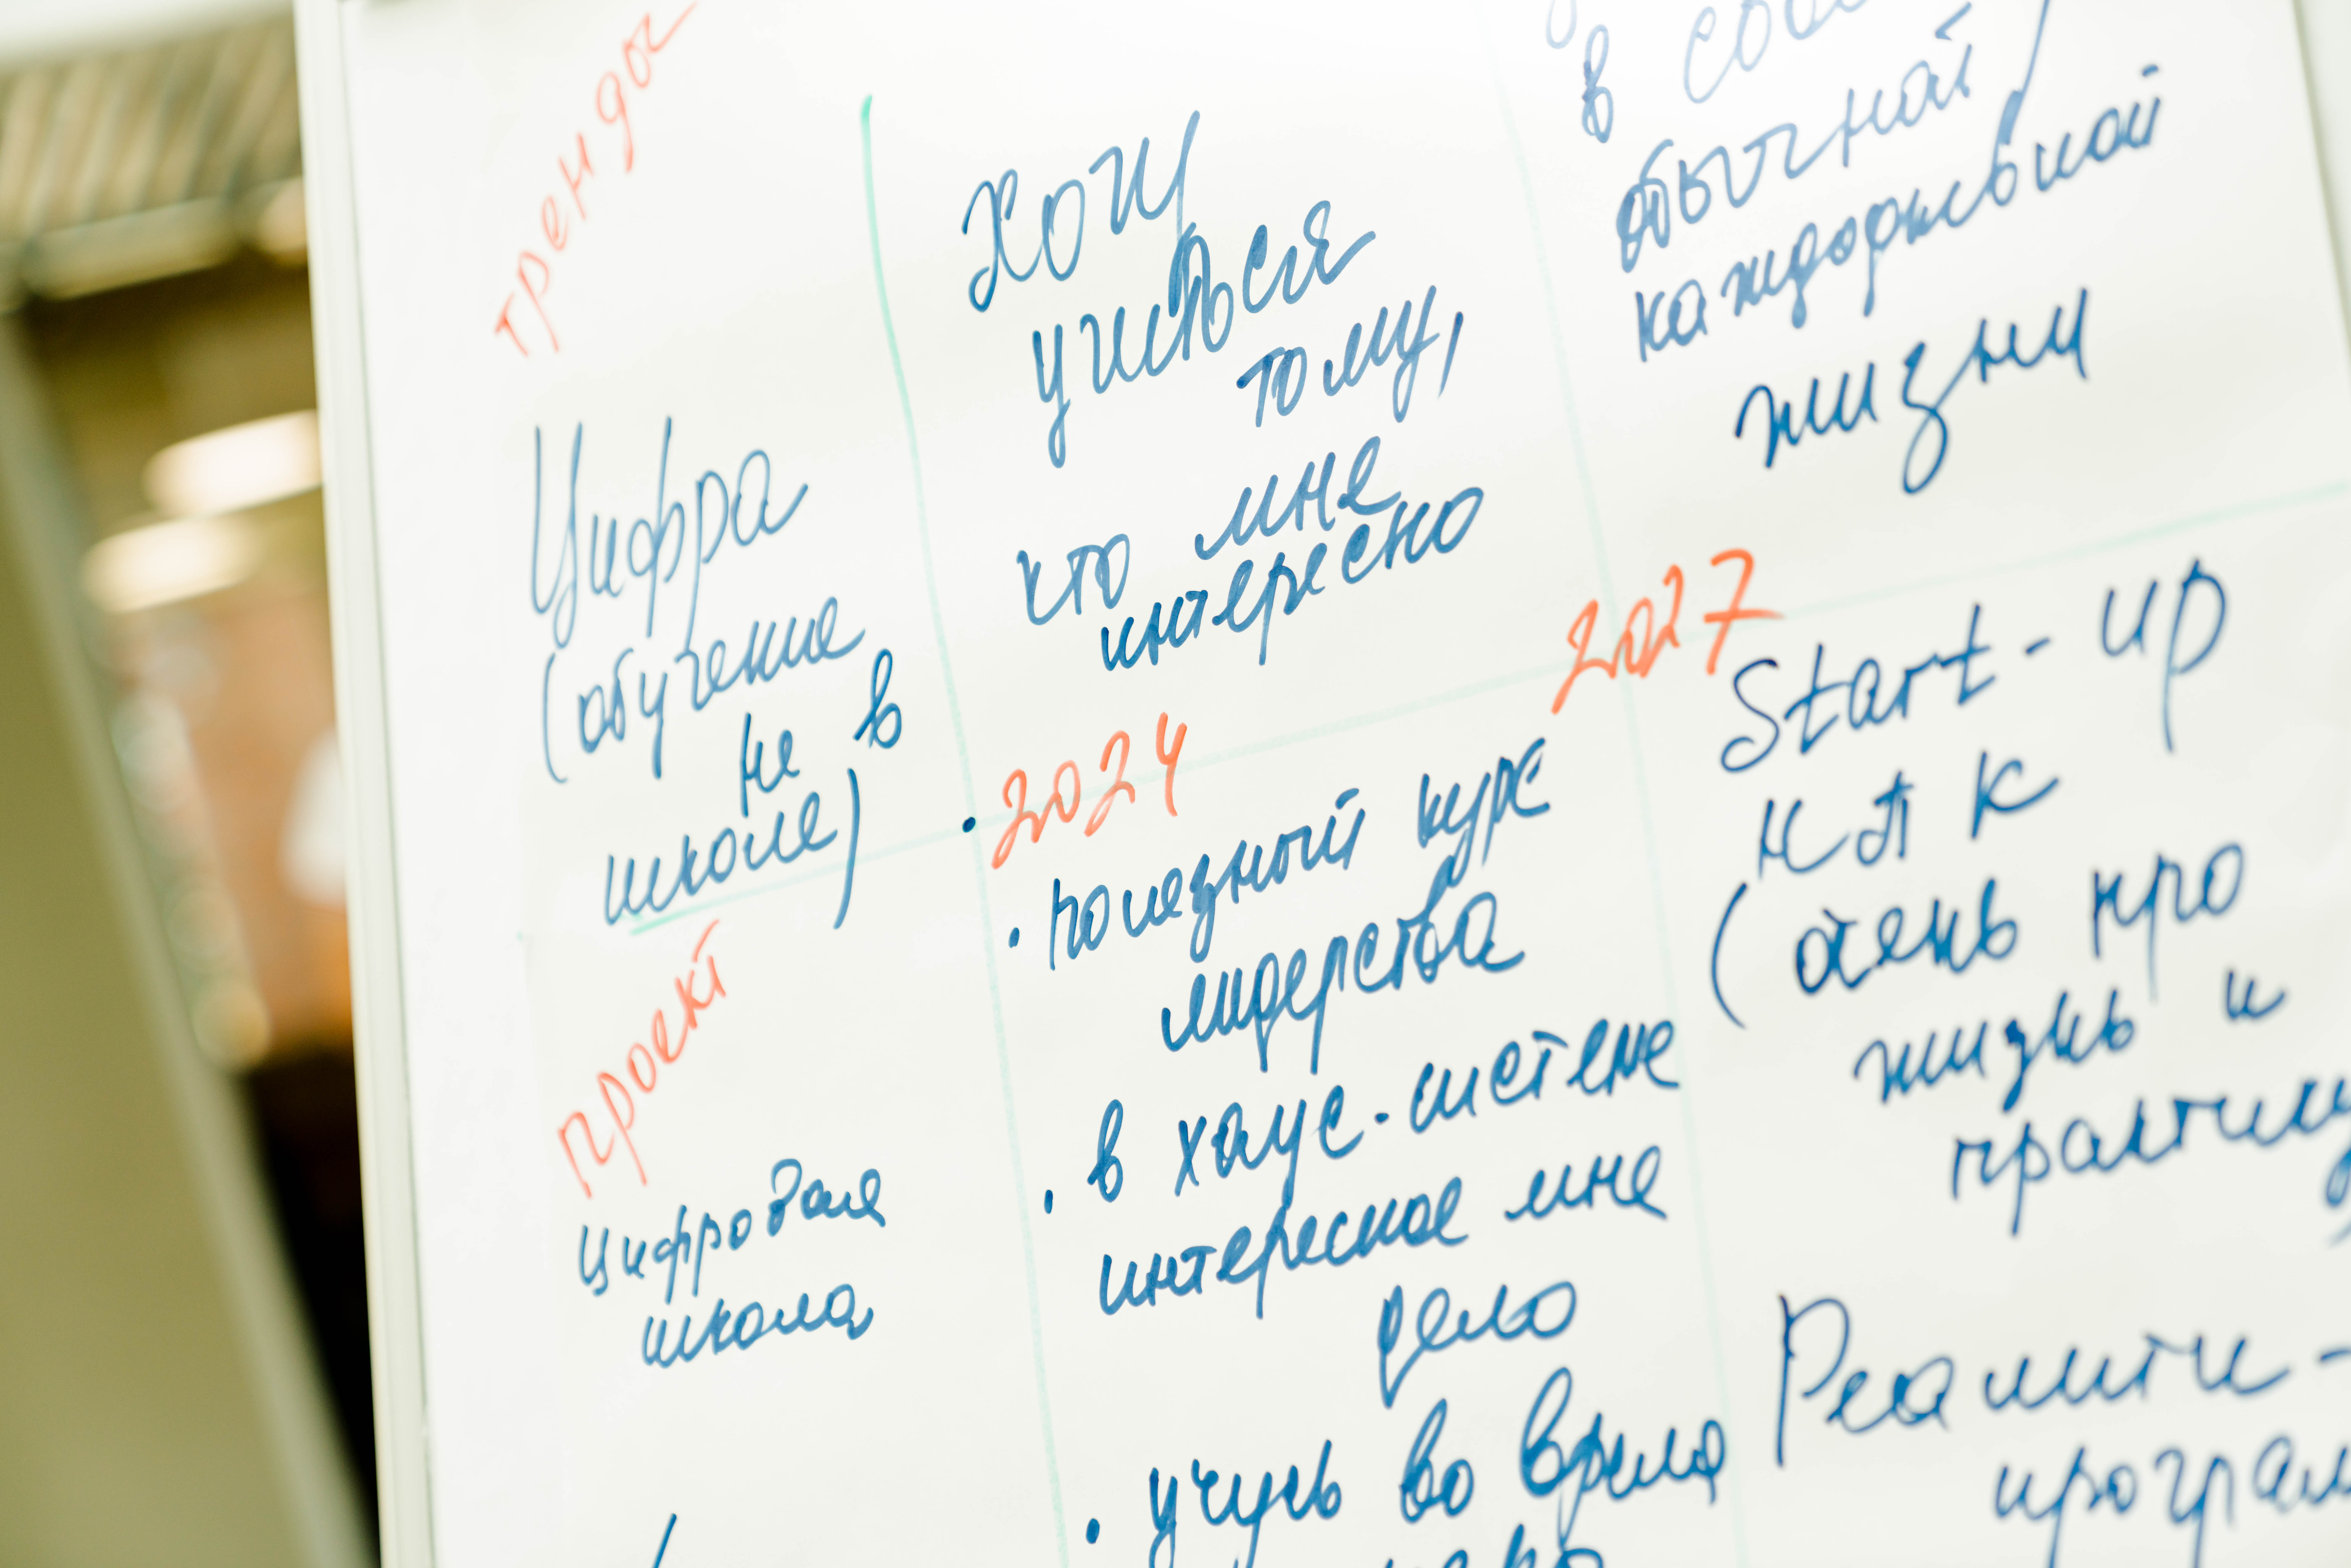 тренды
Цифра
(обучение
не в
школе)
хочу
учиться
тому,
что мне
интересно
в
обычной
каждодневной
жизни
проект
Цифровая
школа
2024
• полезный курс
лидерства
• в хаус-системе
интересное мне
дело
• учусь во время
2027
Start-up
как
(очень про
жизнь и
Реалити-